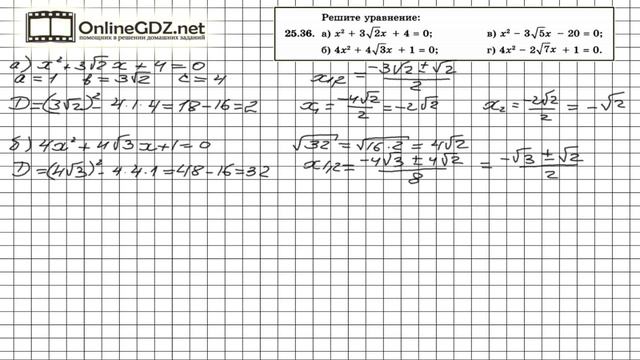 OnlineGDZ.net
помощник в решении домашних заданий
Решите уравнение:
25.36. а) x² + 3√2x + 4 = 0; в) x² − 3√5x − 20 = 0;
б) 4x² + 4√3x + 1 = 0; г) 4x² − 2√7x + 1 = 0.
а) x² + 3√2 x + 4 = 0
a = 1 b = 3√2 c = 4
D = (3√2)² − 4·1·4 = 18 − 16 = 2
x₁,₂ = (−3√2 ± √2)/2
x₁ = −4√2/2 = −2√2 x₂ = −2√2/2 = −√2
б) 4x² + 4√3 x + 1 = 0
D = (4√3)² − 4·4·1 = 48 − 16 = 32
√32 = √16·2 = 4√2
x₁,₂ = (−4√3 ± 4√2)/8 = (−√3 ± √2)/2